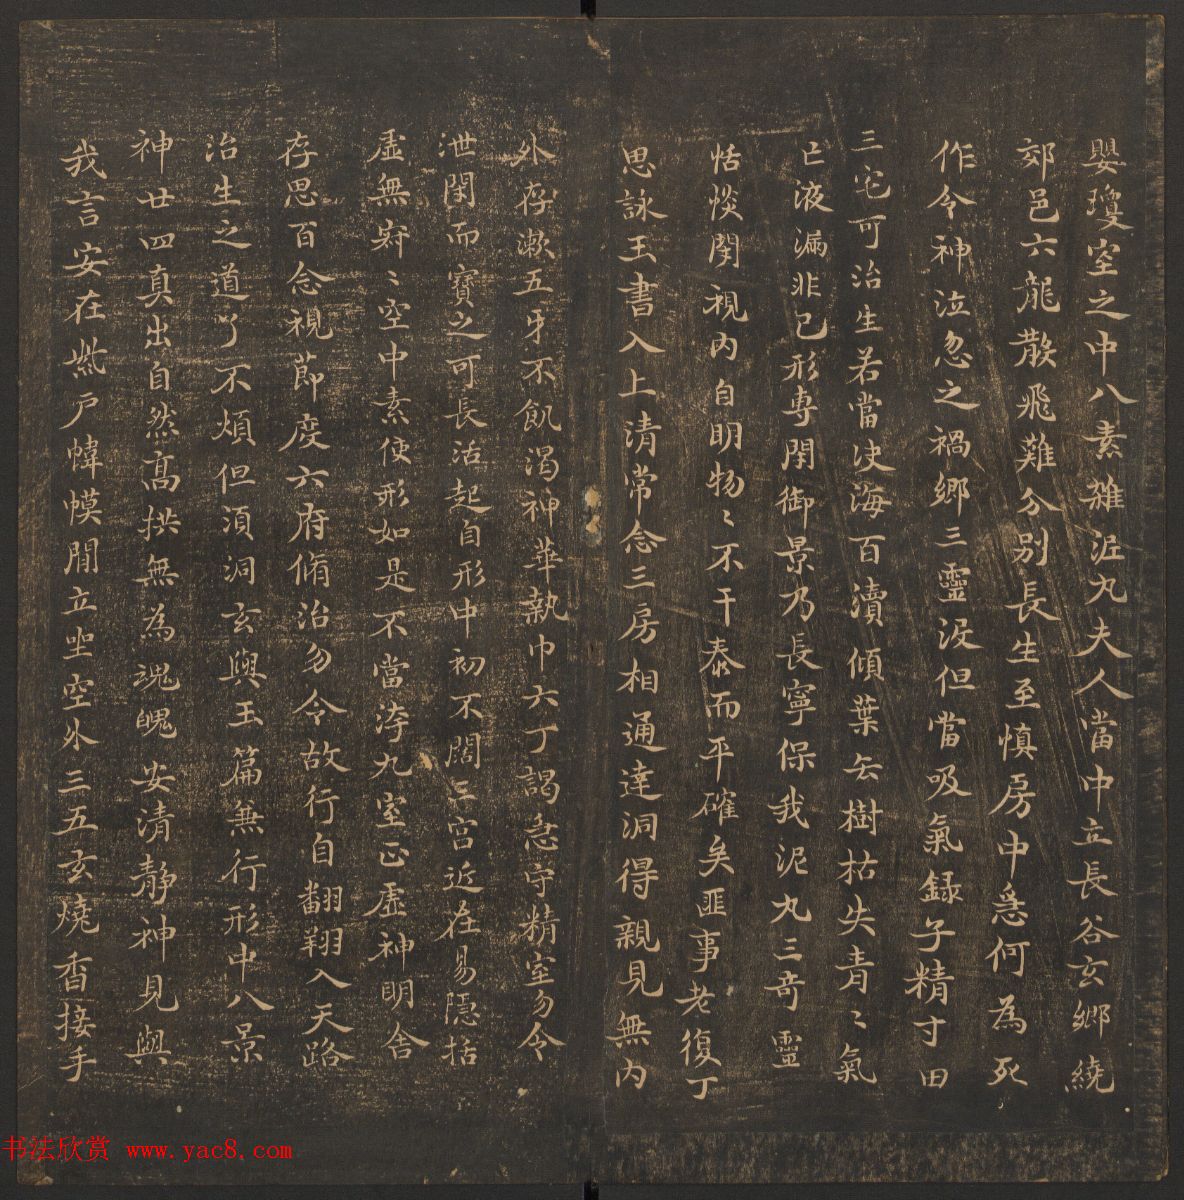 嬰瓊室之中八素雜泥丸夫人當中立長谷玄鄉繞
郊邑六龍散飛難分別長生至慎房中急何為死
作令神泣忽之禍鄉三靈沒但當吸氣錄子精寸田
三宅可治生若當決海百瀆傾葉去樹枯失青〻氣
亡液漏非己形專閉御景乃長寧保我泥丸三奇靈
恬惔閉視內自明物〻不干泰而平確矣匪事老復丁
思詠玉書入上清常念三房相通達洞得親見無內
外存漱五牙不飢渴神華執巾六丁謁急守精室勿令
泄閉而寶之可長活起自形中初不闊三宮近在易隱括
虛無寂〻空中素使形如是不當洿九室正虛神明舍
存思百念視節度六府脩治勿令故行自翱翔入天路
治生之道了不煩但須洞玄與玉篇兼行形中八景
神廿四真出自然高拱無為魂魄安清靜神見與
我言安在紫戶幃幙間立坐空外三五玄燒香接手
书法欣赏 www.yac8.com